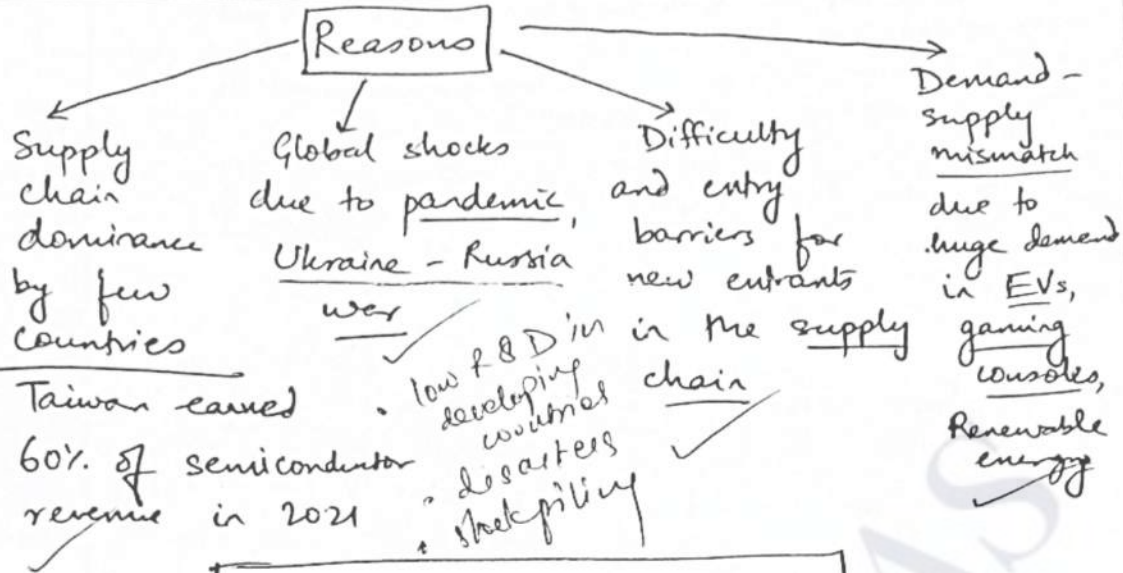 Reasons
Supply
chain
dominance
by few
Countries
Taiwan earned
60% of semiconductor
revenue in 2021
Global shocks
due to pandemic,
Ukraine - Russia
war
• low R&D in
developing
countries
• disasters
• stockpiling
Difficulty
and entry
barriers for
new entrants
in the supply
chain
Demand -
supply
mismatch
due to
huge demand
in EVs,
gaming
consoles,
Renewable
energy